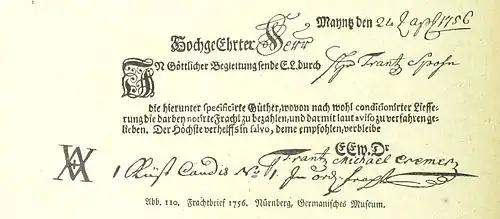 Mayntz den 24 Aprl 1756
HochgeEhrter Herr
IN Göttlicher Begleitung sende E.L. durch Frantz Spohn
die hierunter specificirte Güther, wovon nach wohl conditionirter Lieffe-
rung die darbey notirte Fracht zu bezahlen, und darmit laut aviso zu verfahren ge-
lieben. Der Höchste verhelffs in salvo, deme empfohlen, verbleibe
E Ew. Dr
Frantz Michael Cremer
1 Küst Candis No 11
Abb. 110. Frachtbrief 1756. Nürnberg, Germanisches Museum.